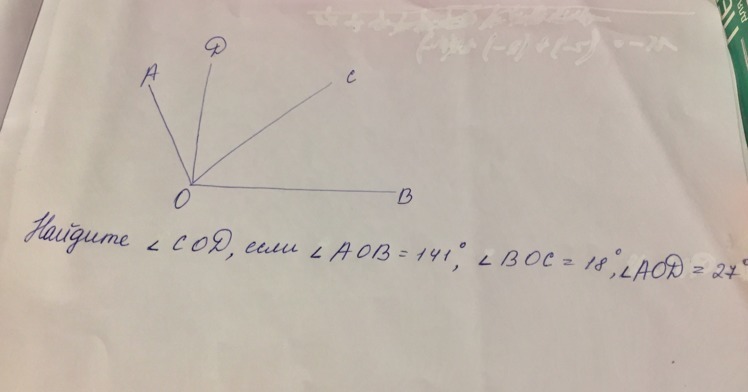 D
A
C
O
B
Найдите ∠COD, если ∠AOB = 141°, ∠BOC = 18°, ∠AOD = 27°